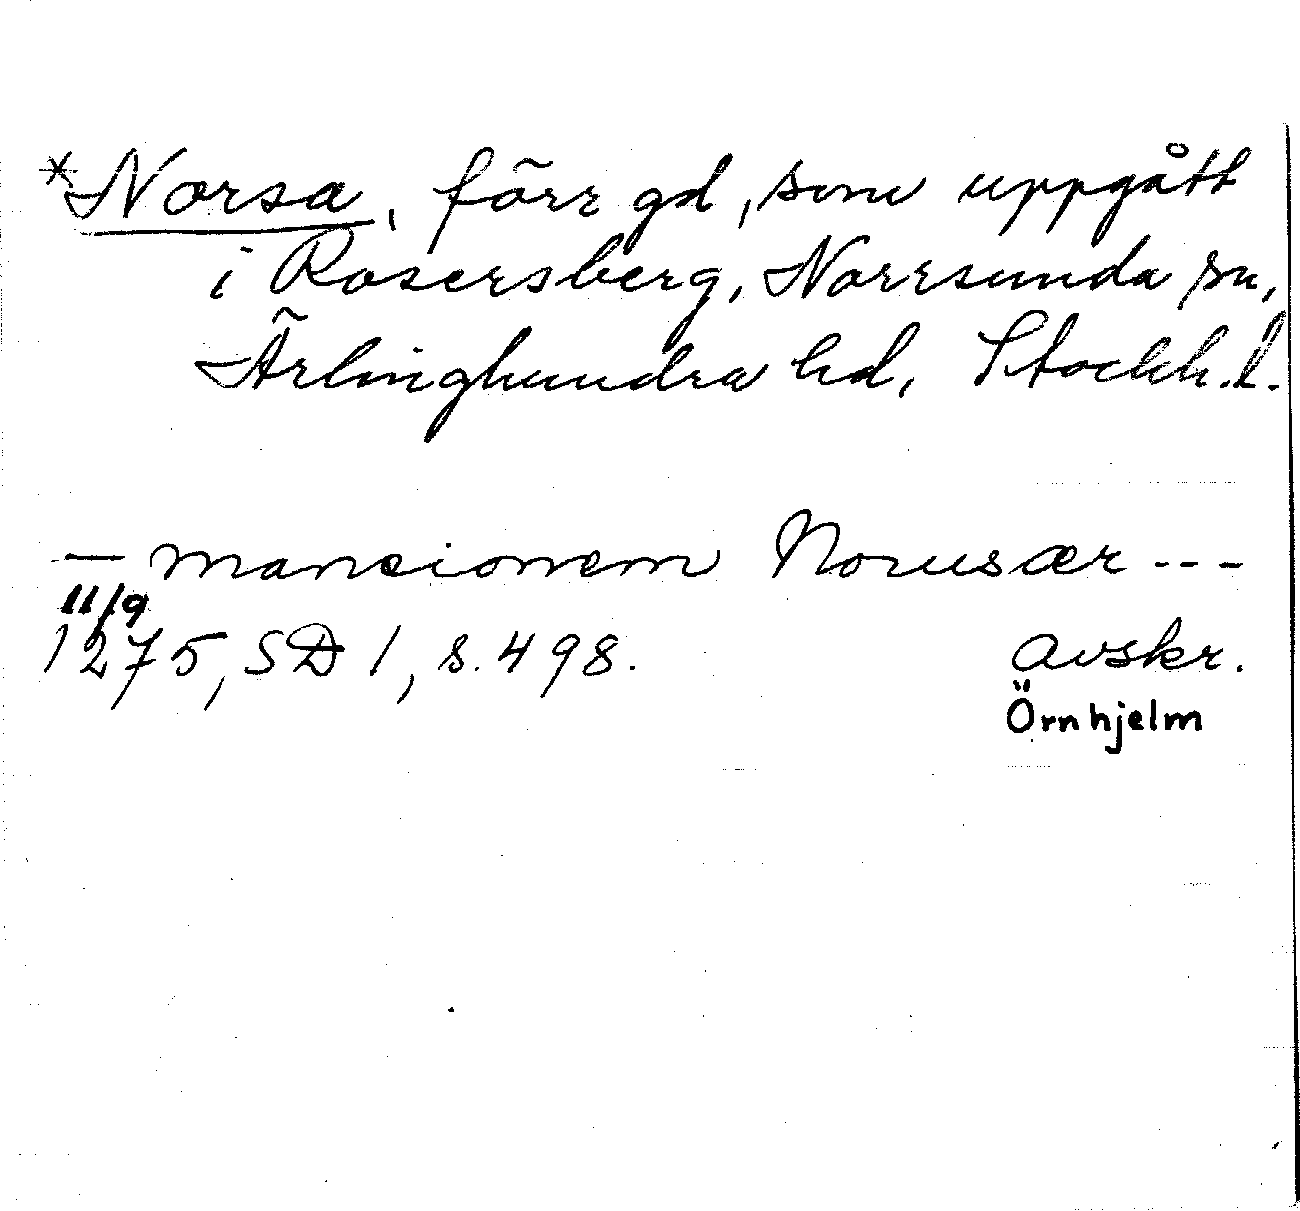 *Norsa, förr gd, som uppgått
i Rosersberg, Norrsunda sn,
Ärlinghundra hd, Stockh.l.
— mansionem Norusær ---
11/9
1275, SD 1, s. 498. avskr.
Örnhjelm